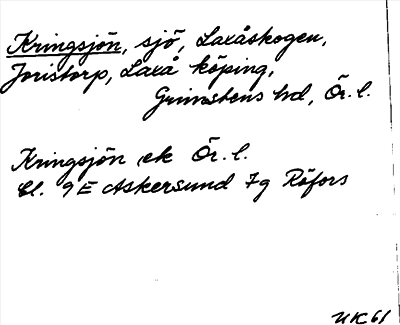 Kringsjön, sjö, Laxåskogen,
Joristorp, Laxå köping,
Grimstens hd, Ör. l.
Kringsjön ek Ör. l.
Bl. 9 E Askersund 7g Röfors
UK 61